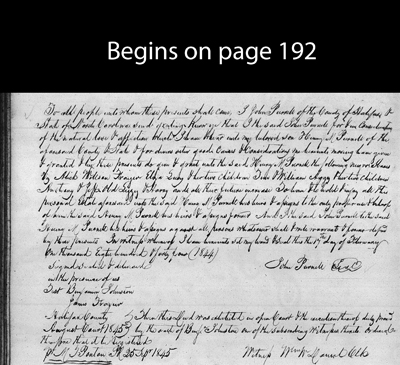 Begins on page 192
To all people unto whom these presents shall come, I John Purnell of the County of Halifax &
State of North Carolina send greeting Know ye that I the said John Purnell for & in consideration
of the natural love & affection that I have & bear unto my beloved son Henry M. Purnell of the
aforesaid County & State & for divers other good Causes & Considerations me hereunto moving have given
& granted & by these presents do give & grant unto the said Henry M. Purnell the following negro Slaves
by & their children & William & their children
& & all their future increase To have & to hold & enjoy all the
personal Estate aforesaid unto the said Henry M. Purnell his heirs & assigns to the only proper use & behoof
of him the said Henry M. Purnell his heirs & assigns forever And I the said John Purnell to the said
Henry M. Purnell his heirs & assigns against all persons whatsoever shall & will warrant & forever defend
by these presents In witness whereof I have hereunto set my hand & Seal this the 17th day of February
One thousand Eight hundred & forty four (1844)
Signed Sealed & delivered John Purnell Seal
in the presence of us
Test Benjamin Johnston
James Frazier
Halifax County Then this Deed was exhibited in open Court & the execution thereof duly proved
August Court 1845 by the oath of Benj Johnston one of the subscribing witnesses thereto & ordered
therefore that it be Registered
pr M. J. Ponton PR 25 Sept 1845 Witness Clk